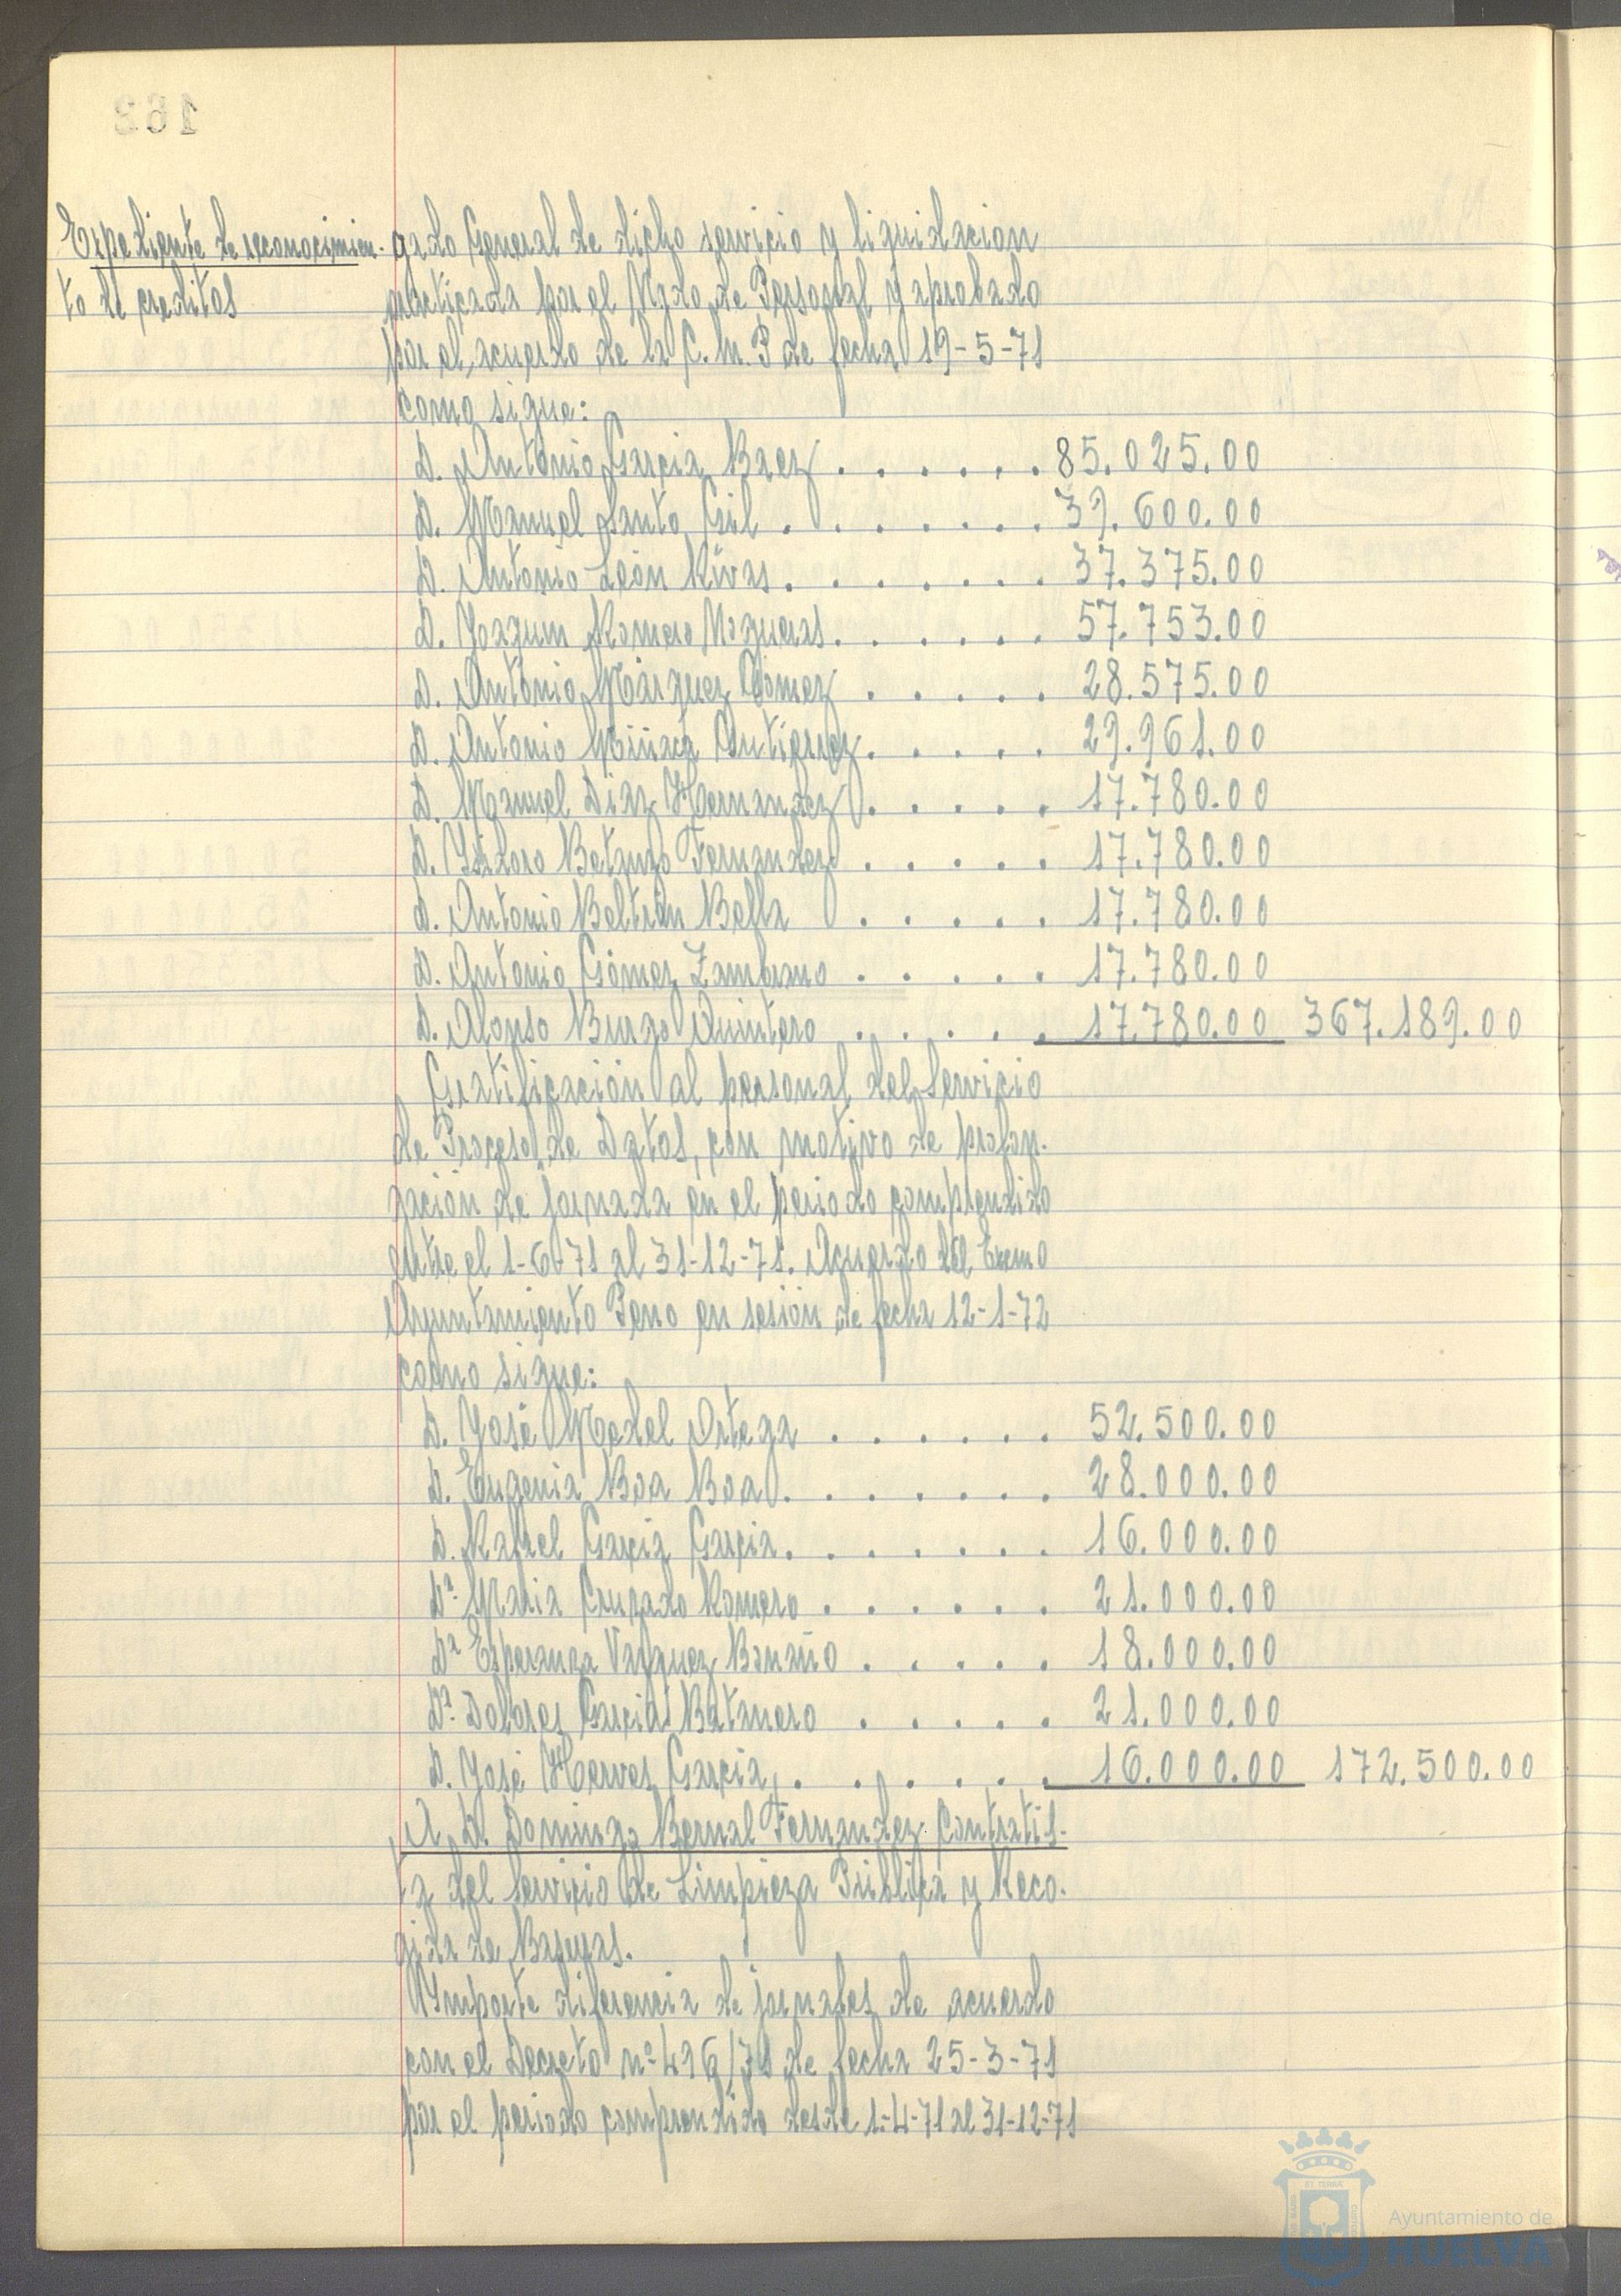 Expediente de reconocimien-
to de creditos
gado General de dicho servicio y liquidacion
practicada por el Ngdo de Personal y aprobado
por el acuerdo de la C. M. P de fecha 19-5-71
como sigue:
D. Antonio Garcia Baez . . . . . . 85.025.00
D. Manuel Santo Gil . . . . . . . 39.600.00
D. Antonio León Rivas . . . . . . . 37.375.00
D. Yoaquin Romero Nogueras . . . . . . 57.753.00
D. Antonio Márquez Gómez . . . . . 28.575.00
D. Antonio Gutierrez . . . . . 29.961.00
D. Manuel Diaz Hernandez . . . . . 17.780.00
D. Ysidoro Betanzo Fernandez . . . . . 17.780.00
D. Antonio Beltrán Bella . . . . . 17.780.00
D. Antonio Gómez Zambrano . . . . . 17.780.00
D. Alonso Burgo Quintero . . . . . 17.780.00 367.189.00
Gratificación al personal del Servicio
de Proceso de Datos, con motivo de prolon-
gación de jornada en el periodo comprendido
entre el 1-6-71 al 31-12-71. Acuerdo del Excmo
Ayuntamiento Peno en sesión de fecha 12-1-72
como sigue:
D. Yosé Medel Ortega . . . . . . 52.500.00
D. Eugenia Boa Boa . . . . . . . 28.000.00
D. Rafael Garcia Garcia . . . . . . . 16.000.00
Dª Maria Cruzado Romero . . . . . . 21.000.00
Dª Esperanza Vazquez Bonaño . . . . . 18.000.00
Dª Dolores Garcia Batanero . . . . . 21.000.00
D. Yosé Herves Garcia . . . . . . 16.000.00 172.500.00
A D. Domingo Bernal Fernandez Contratis-
ta del Servicio de Limpieza Pública y Reco-
gida de Basuras.
Ymporte diferencia de jornales de acuerdo
con el Decreto nº 496/71 de fecha 25-3-71
por el periodo comprendido desde 1-4-71 al 31-12-71
Ayuntamiento de
HUELVA